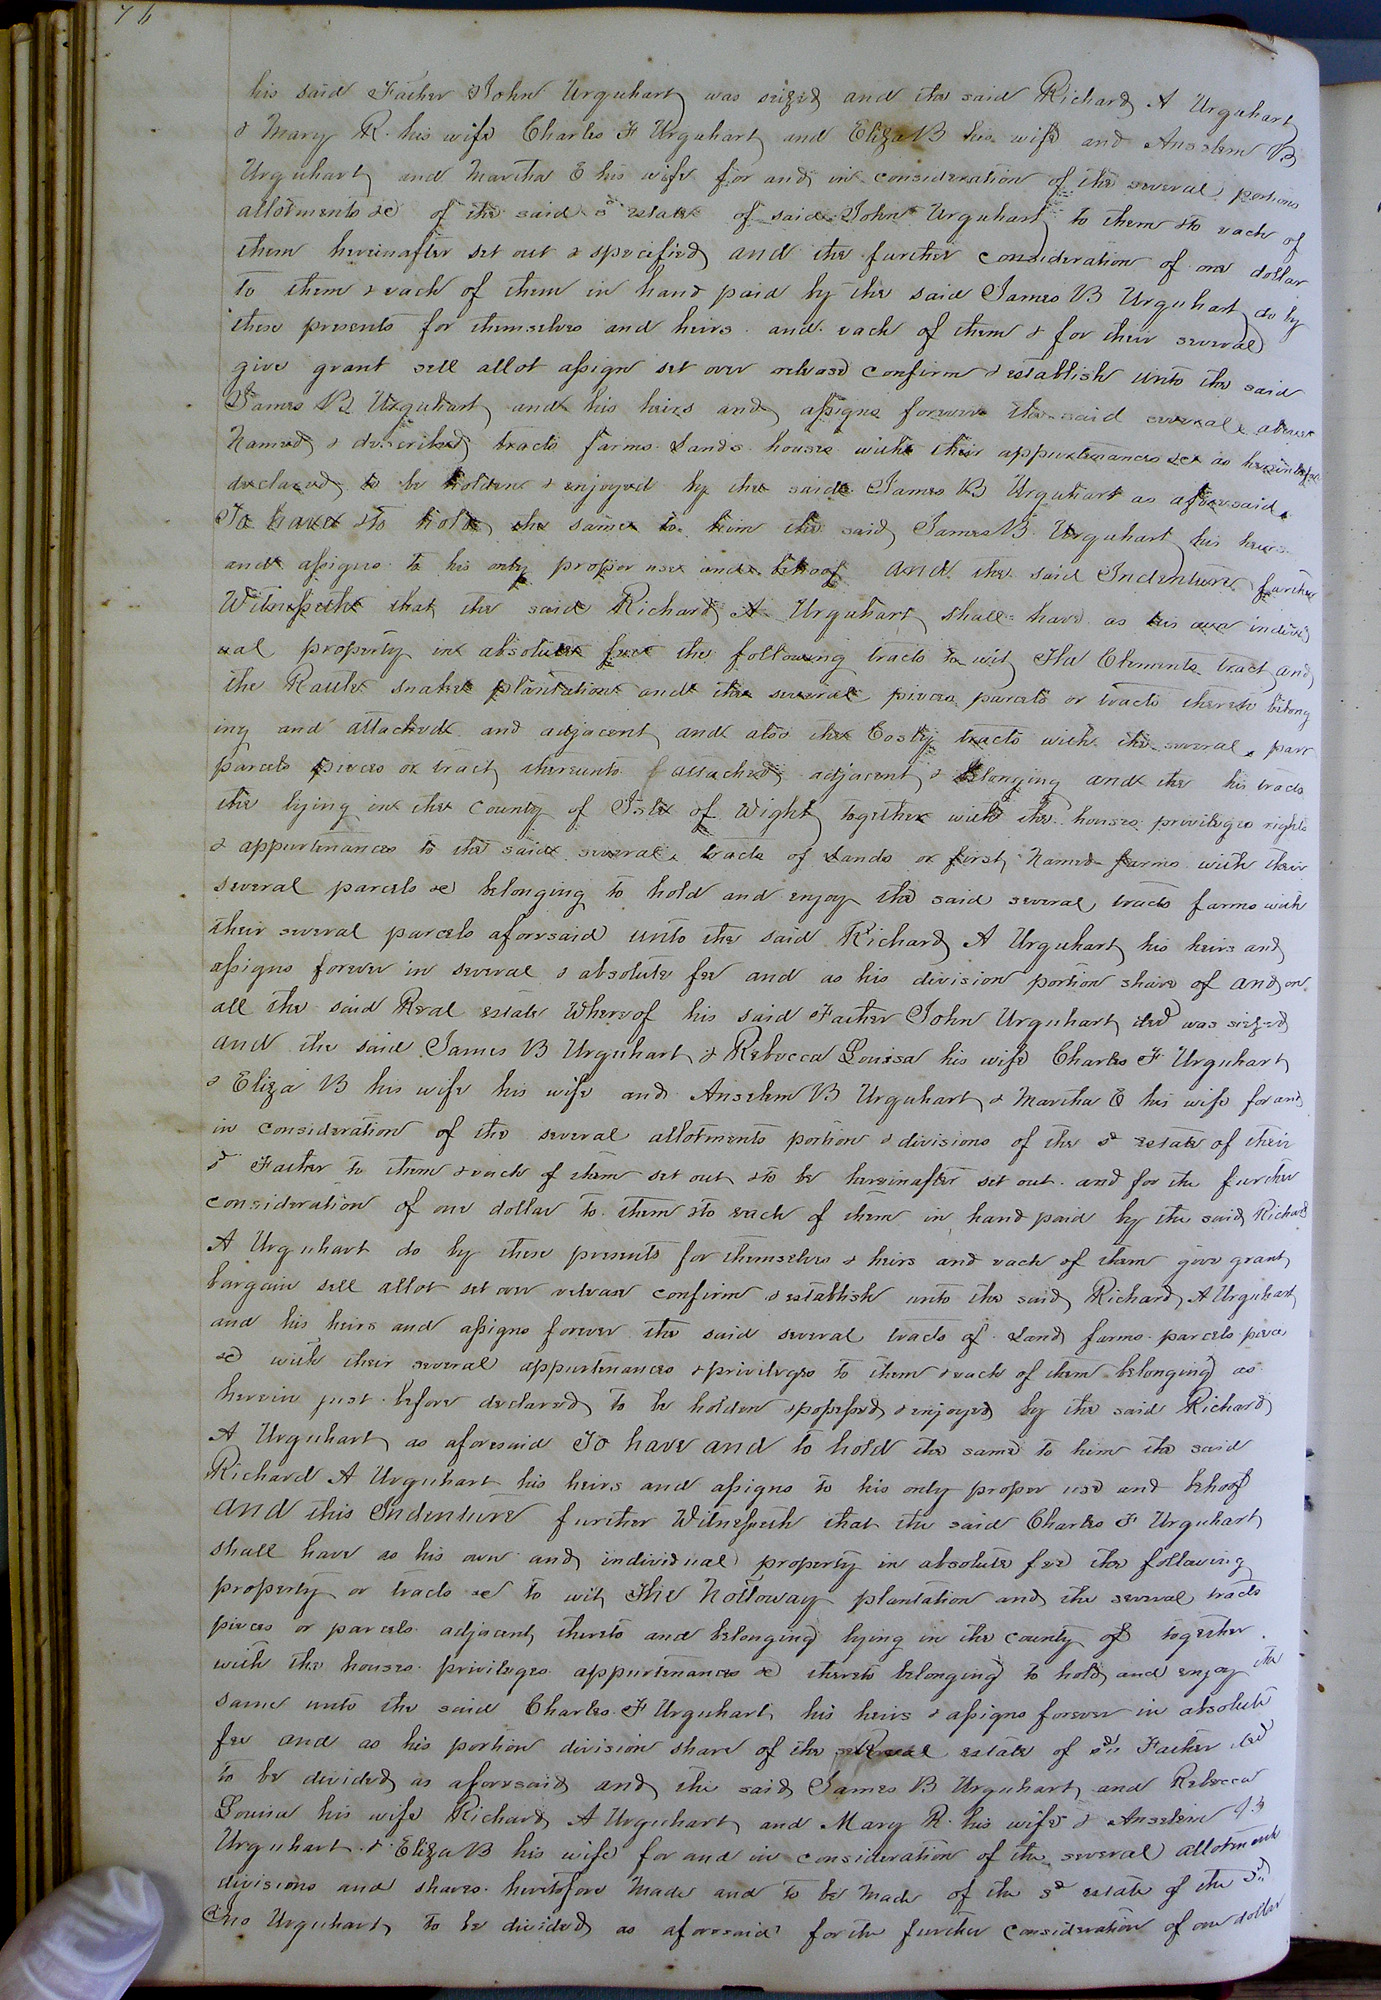 76
his said Father John Urquhart was seized and the said Richard A Urquhart
& Mary R. his wife Charles F Urquhart and Eliza B his wife and Anselem B
Urquhart and Martha E his wife for and in consideration of the several portions
allotments &c of the said sd estate of said John Urquhart to them & to each of
them hereinafter set out & specified and the further consideration of one dollar
to them & each of them in hand paid by the said James B Urquhart do by
these presents for themselves and heirs and each of them & for their several
give grant sell allot assign set over release confirm & establish unto the said
James B Urquhart and his heirs and assigns forever the said several above
Named & described tracts farms Lands houses with their appurtenances &c as hereinbefore
declared to be holden & enjoyed by the said James B Urquhart as aforesaid.
To have & to hold the same to him the said James B Urquhart his heirs
and assigns to his only proper use and behoof and the said Indenture further
Witnesseth that the said Richard A Urquhart shall have as his own individ
ual property in absolute fee the following tracts to wit The Clements tract and
the Rattle snake plantation and the several pieces parcels or tracts thereto belong
ing and attached and adjacent and also the tracts with the several
parcels pieces or tract thereunto attached adjacent & belonging and the his tracts
the lying in the County of Isle of Wight together with the houses privileges rights
& appurtenances to the said several tracts of Lands or first Named farms with their
several parcels &c belonging to hold and enjoy the said several tracts farms with
their several parcels aforesaid unto the said Richard A Urquhart his heirs and
assigns forever in several & absolute fee and as his division portion share of and on
all the said Real estate Whereof his said Father John Urquhart decd was seized
and the said James B Urquhart & Rebecca Louisa his wife Charles F Urquhart
& Eliza B his wife his wife and Anselem B Urquhart & Martha E his wife for and
in consideration of the several allotments portion & divisions of the sd estate of their
sd Father to them & each of them set out & to be hereinafter set out and for the further
consideration of one dollar to them & to each of them in hand paid by the said Richard
A Urquhart do by these presents for themselves & heirs and each of them give grant
bargain sell allot set over release confirm & establish unto the said Richard A Urquhart
and his heirs and assigns forever the said several tracts of Land farms parcels pieces
&c with their several appurtenances & privileges to them & each of them belonging as
herein just before declared to be holden & possessed & enjoyed by the said Richard
A Urquhart as aforesaid To have and to hold the same to him the said
Richard A Urquhart his heirs and assigns to his only proper use and behoof
and this Indenture further Witnesseth that the said Charles F Urquhart
shall have as his own and individual property in absolute fee the following
property or tracts &c to wit The Nottoway plantation and the several tracts
pieces or parcels adjacent thereto and belonging lying in the county of together
with the houses privileges appurtenances &c thereto belonging to hold and enjoy the
same unto the said Charles F Urquhart his heirs & assigns forever in absolute
fee and as his portion division share of the Real estate of sd Father decd
to be divided as aforesaid and the said James B Urquhart and Rebecca
Louisa his wife Richard A Urquhart and Mary R his wife & Anselem B
Urquhart & Eliza B his wife for and in consideration of the several allotment
divisions and shares heretofore Made and to be Made of the sd estate of the sd
Jno Urquhart to be divided as aforesaid for the further consideration of one dollar